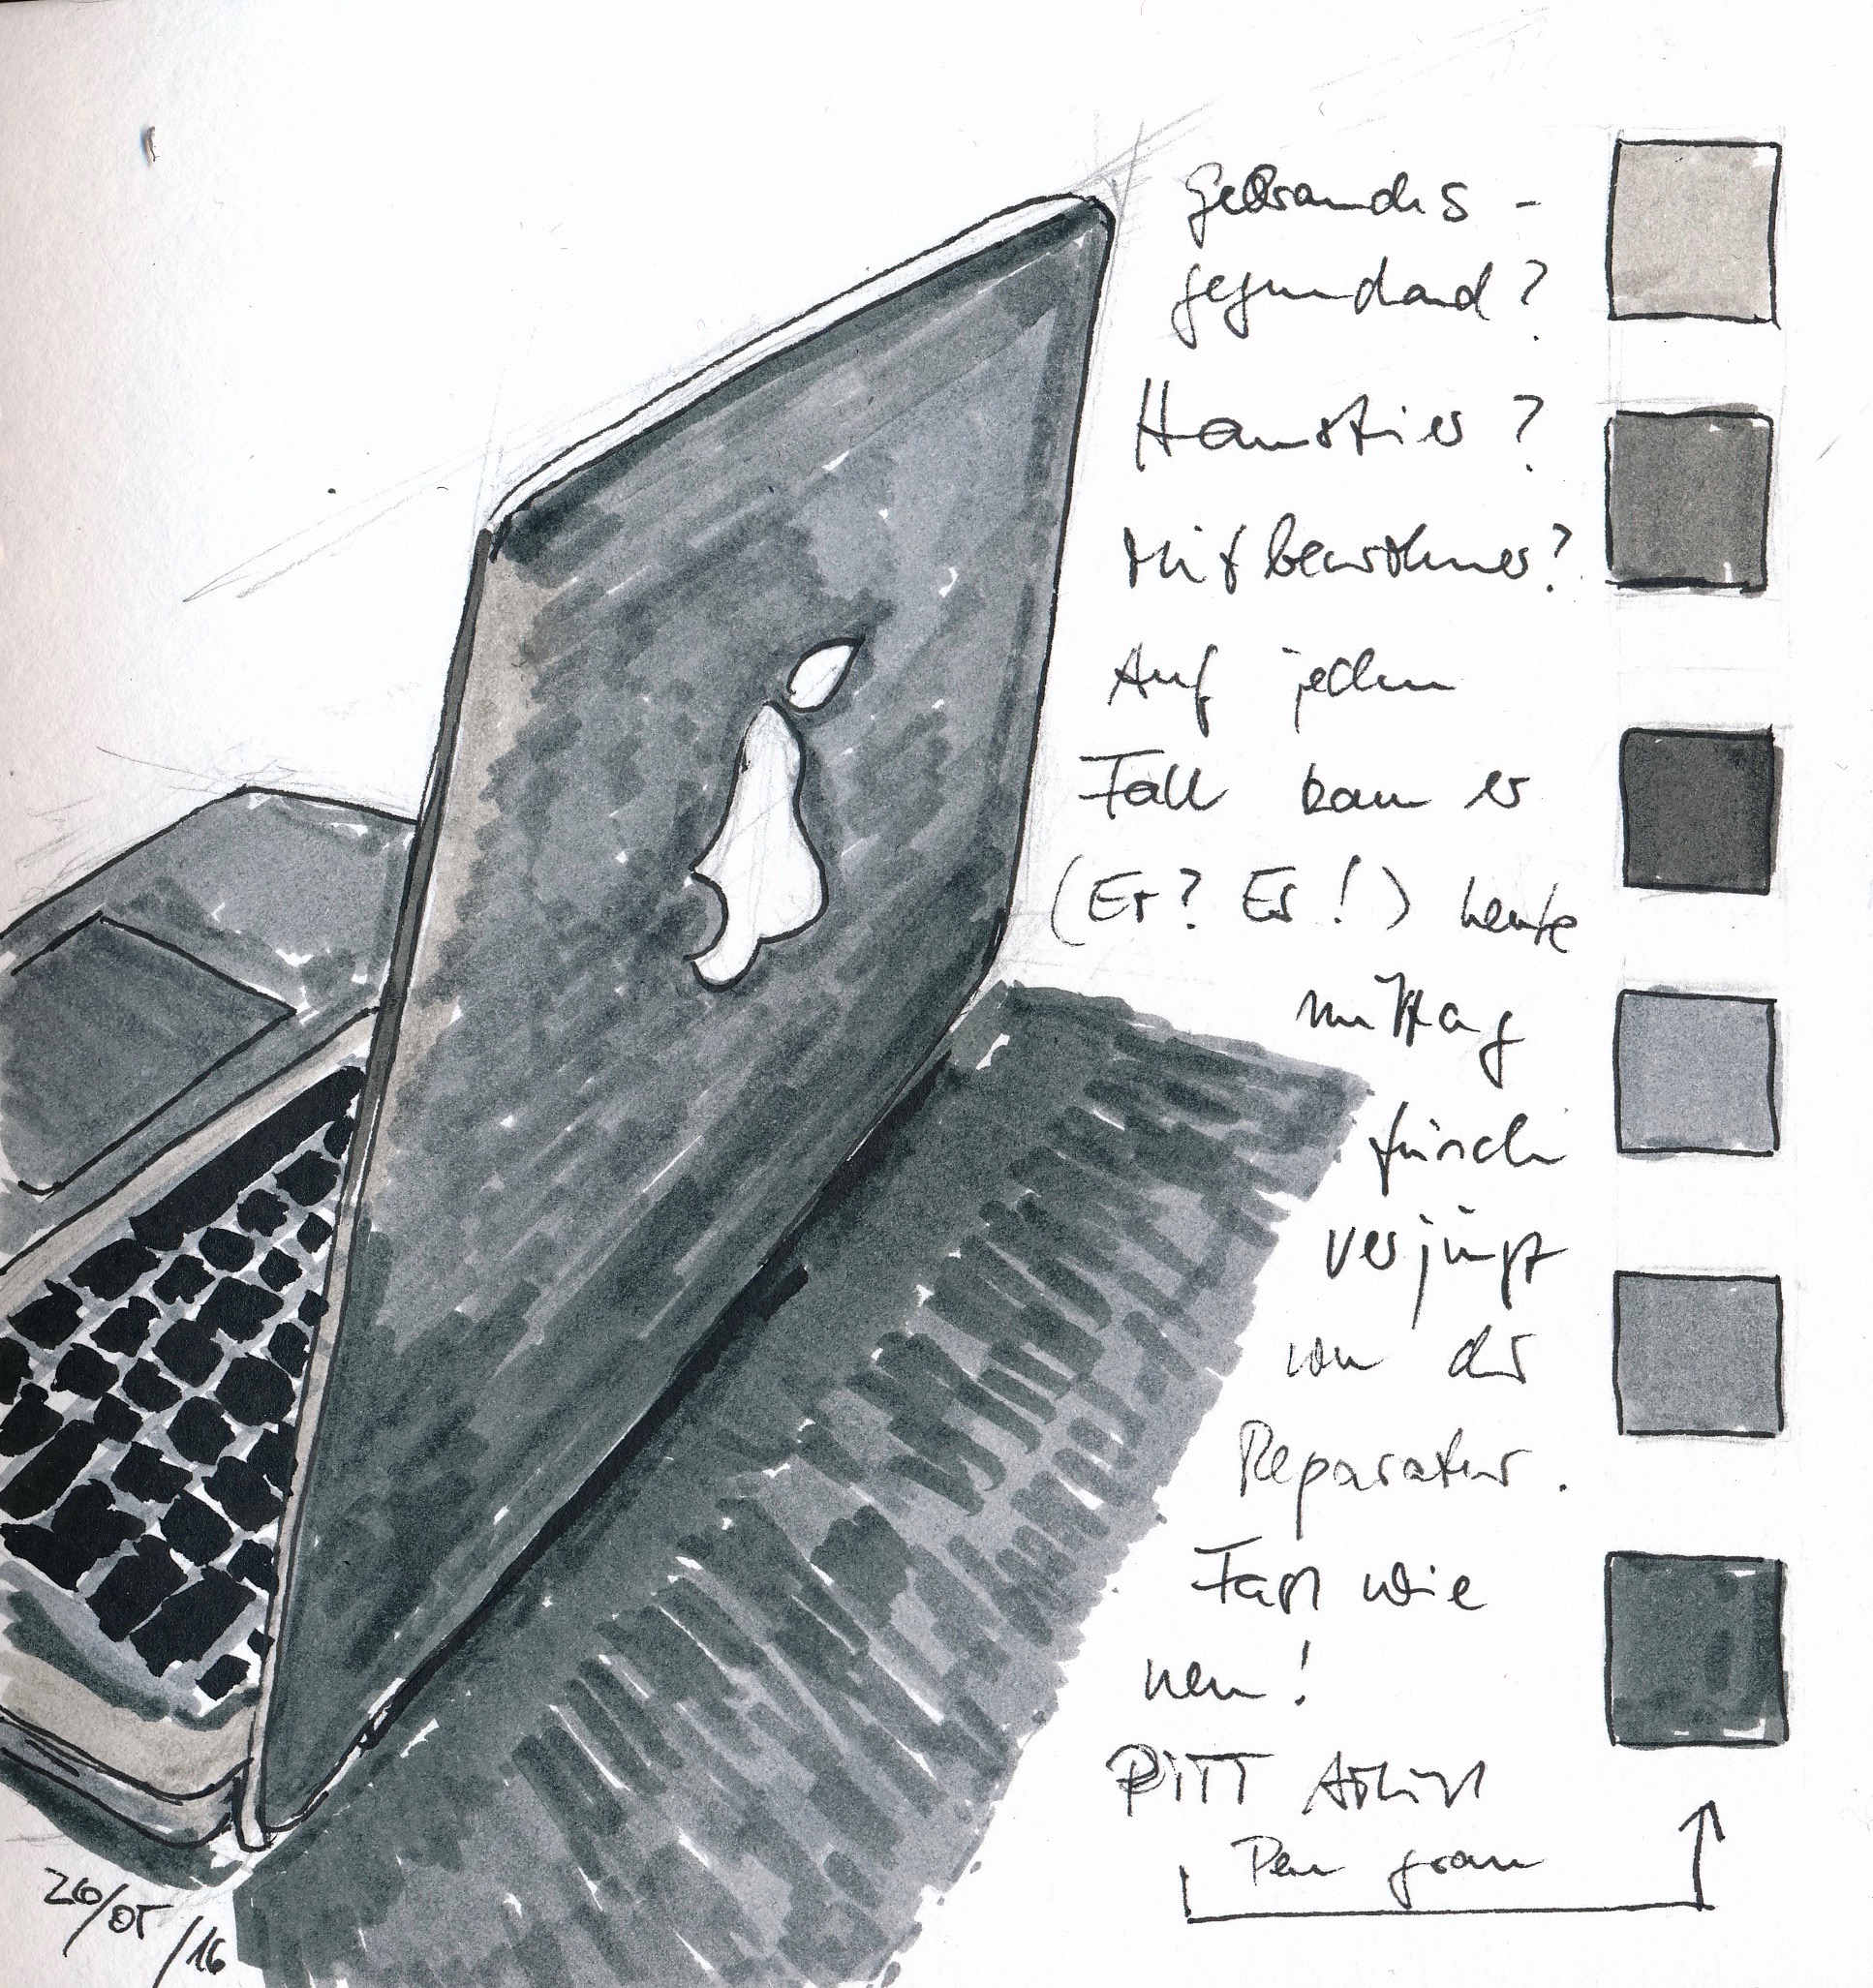 Gebrauchs-
gegenstand?
Haustier?
Mitbewohner?
Auf jeden
Fall kam er
(Er? Er!) heute
mittag
frisch
verjüngt
von der
Reparatur.
Fast wie
neu!
PITT Artist
Pen grau
26/05/16